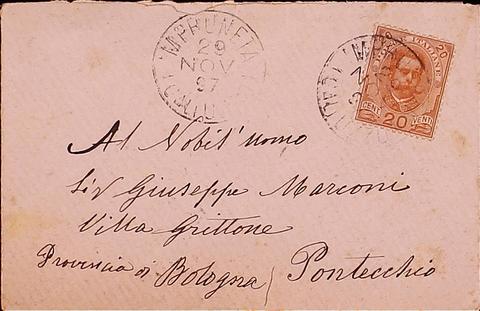 IMPRUNETA
29
NOV
97
POSTE ITALIANE
CENT 20 VENTI
Al Nobil' uomo
Sig Giuseppe Marconi
Villa Grittone
Provincia di Bologna Pontecchio